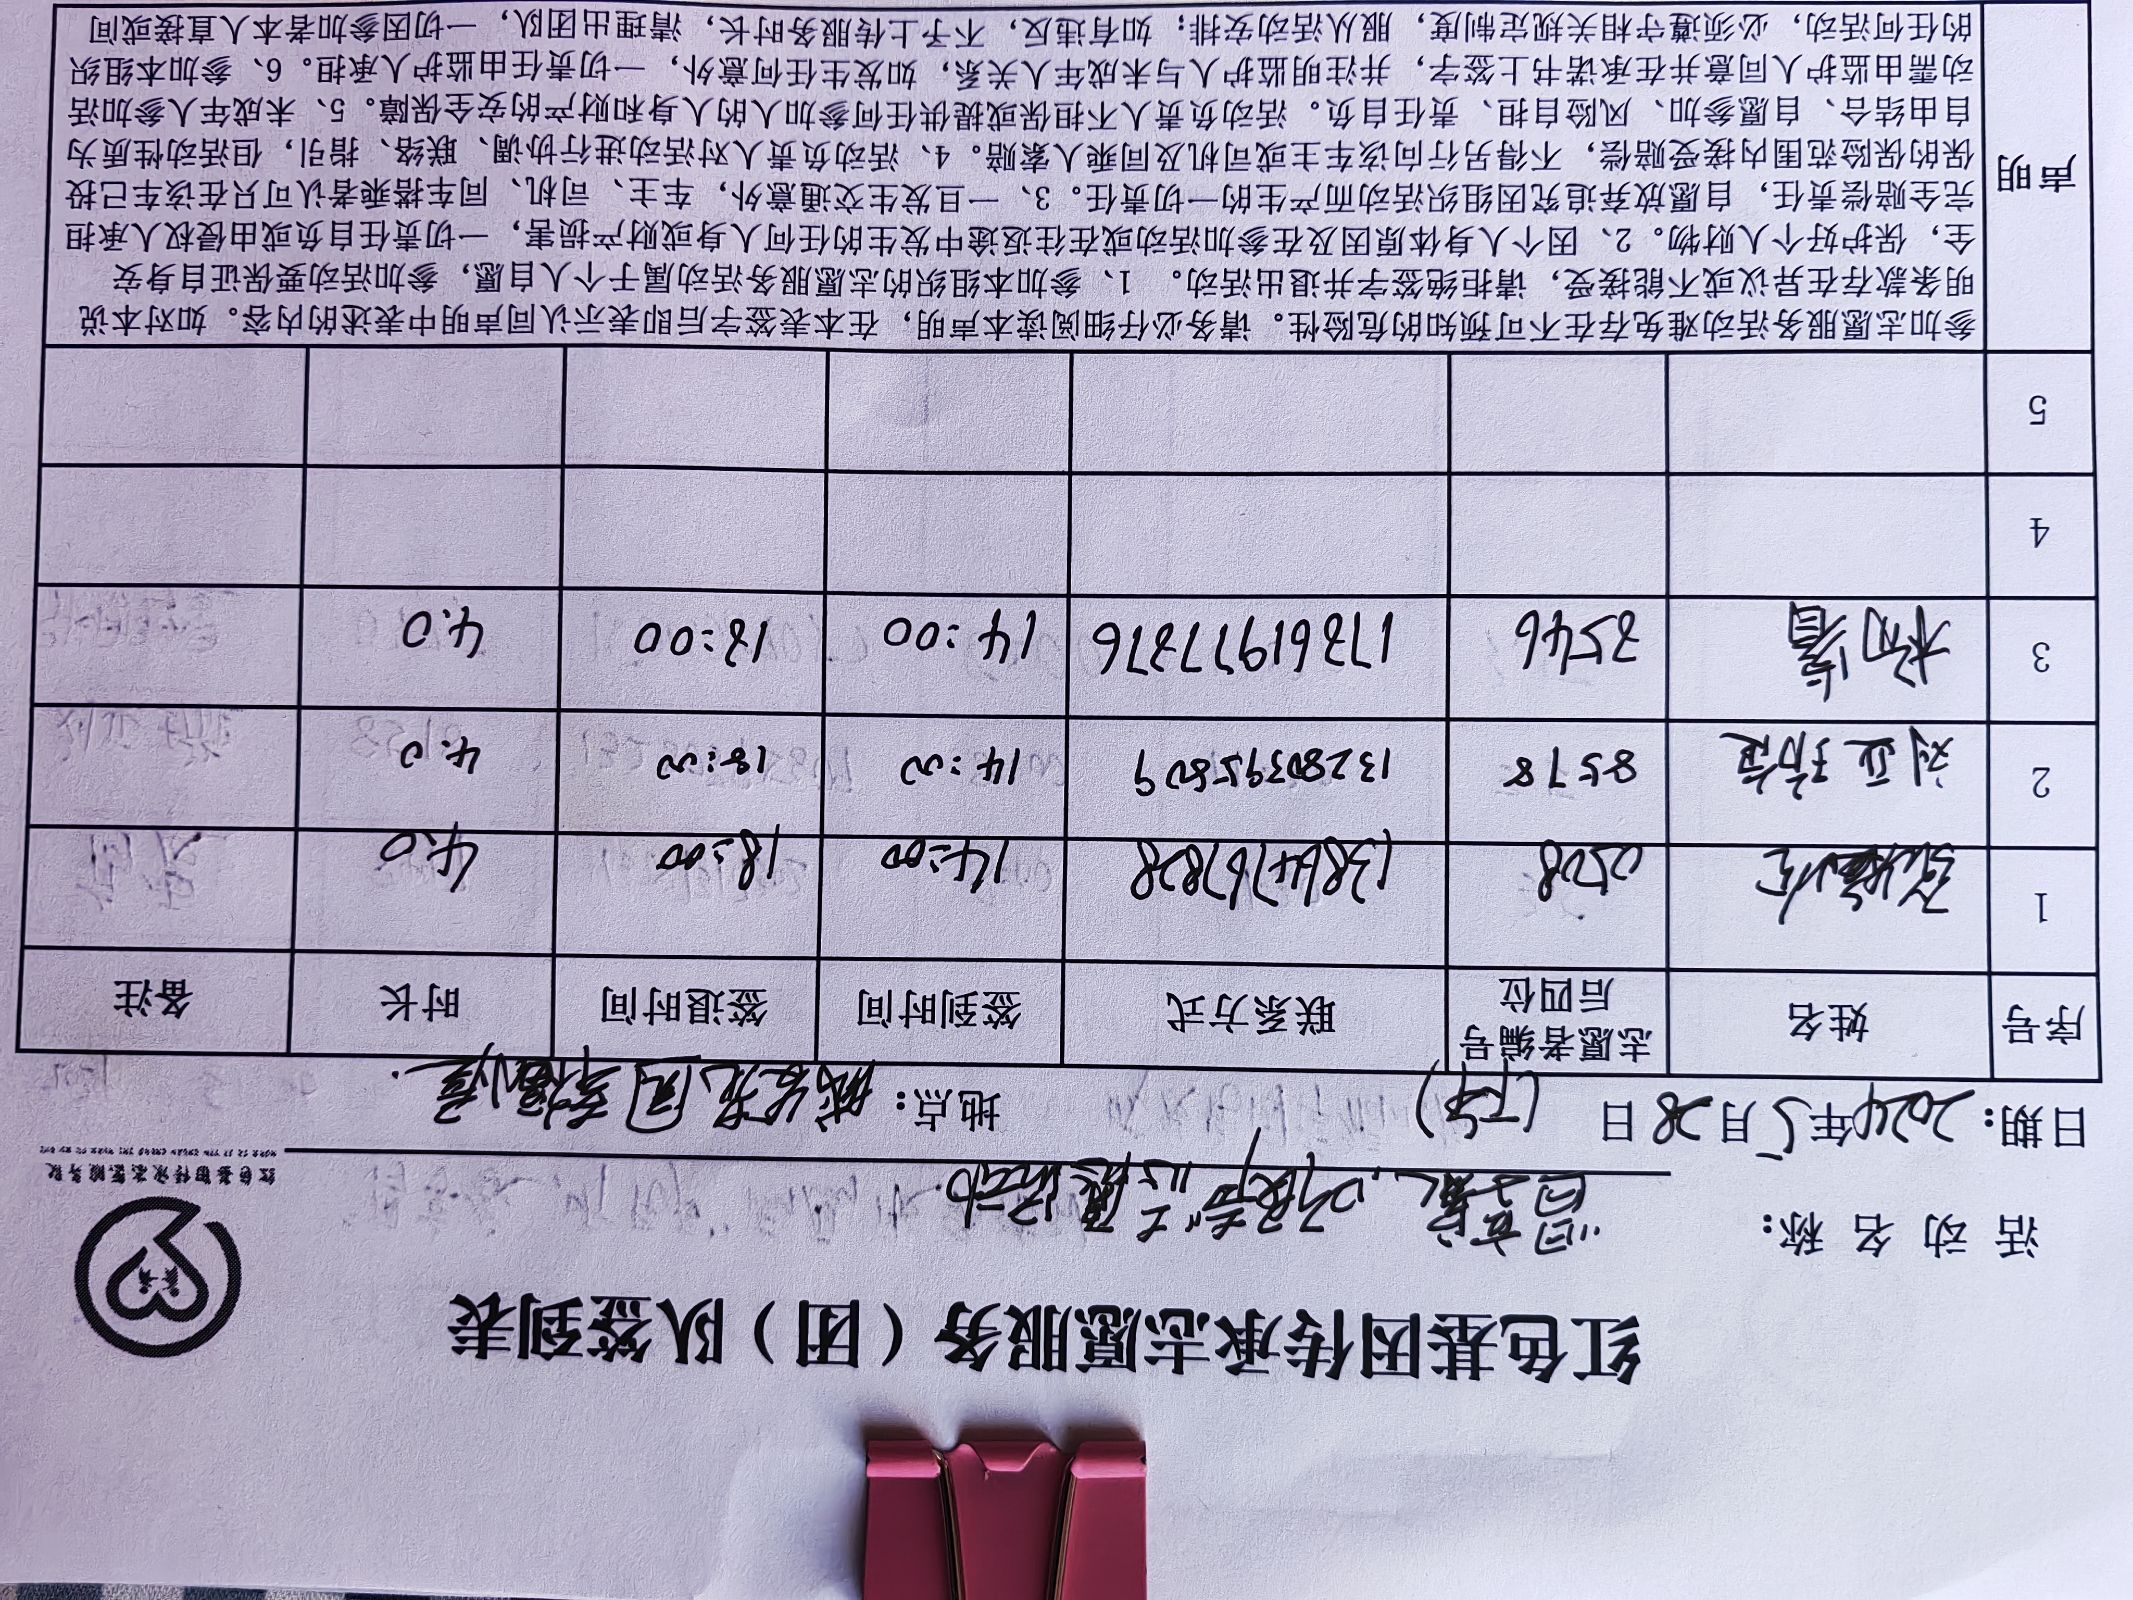 红色基因传承志愿服务（团）队签到表
红色基因传承志愿服务队
活 动 名 称：
日期：2024年5月28日（下午） 地点：
序号 姓名 志愿者编号后四位 联系方式 签到时间 签退时间 时长 备注
1 0508 13864767828 14:00 18:00 4.0
2 8578 13280395809 14:00 18:00 4.0
3 3546 17361977376 14:00 18:00 4.0
4
5
声明
参加志愿服务活动难免存在不可预知的危险性。请务必仔细阅读本声明，在本表签字后即表示认同声明中表述的内容。如对本说
明条款存在异议或不能接受，请拒绝签字并退出活动。 1、参加本组织的志愿服务活动属于个人自愿，参加活动要保证自身安
全，保护好个人财物。2、因个人身体原因及在参加活动或在往返途中发生的任何人身或财产损害，一切责任自负或由侵权人承担
完全赔偿责任，自愿放弃追究因组织活动而产生的一切责任。3、一旦发生交通意外，车主、司机、同车搭乘者认可只在该车已投
保的保险范围内接受赔偿，不得另行向该车主或司机及同乘人索赔。4、活动负责人对活动进行协调、联络、指引，但活动性质为
自由结合、自愿参加、风险自担、责任自负。活动负责人不担保或提供任何参加人的人身和财产的安全保障。5、未成年人参加活
动需由监护人同意并在承诺书上签字，并注明监护人与未成年人关系，如发生任何意外，一切责任由监护人承担。6、参加本组织
的任何活动，必须遵守相关规定制度，服从活动安排；如有违反，不予上传服务时长，清理出团队，一切因参加者本人直接或间